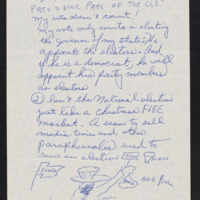 PRES & VICE PRES OF THE U.S!
My vote doesn't count!
my vote only counts in electing
the Governor of my state. He
appoints the electors. And
if he is a democrat, he will
appoint his party members
as electors
② Isn't the National election
just like a Christmas FREE
market. A scene to sell
media time and other
paraphernalia used to
run an election